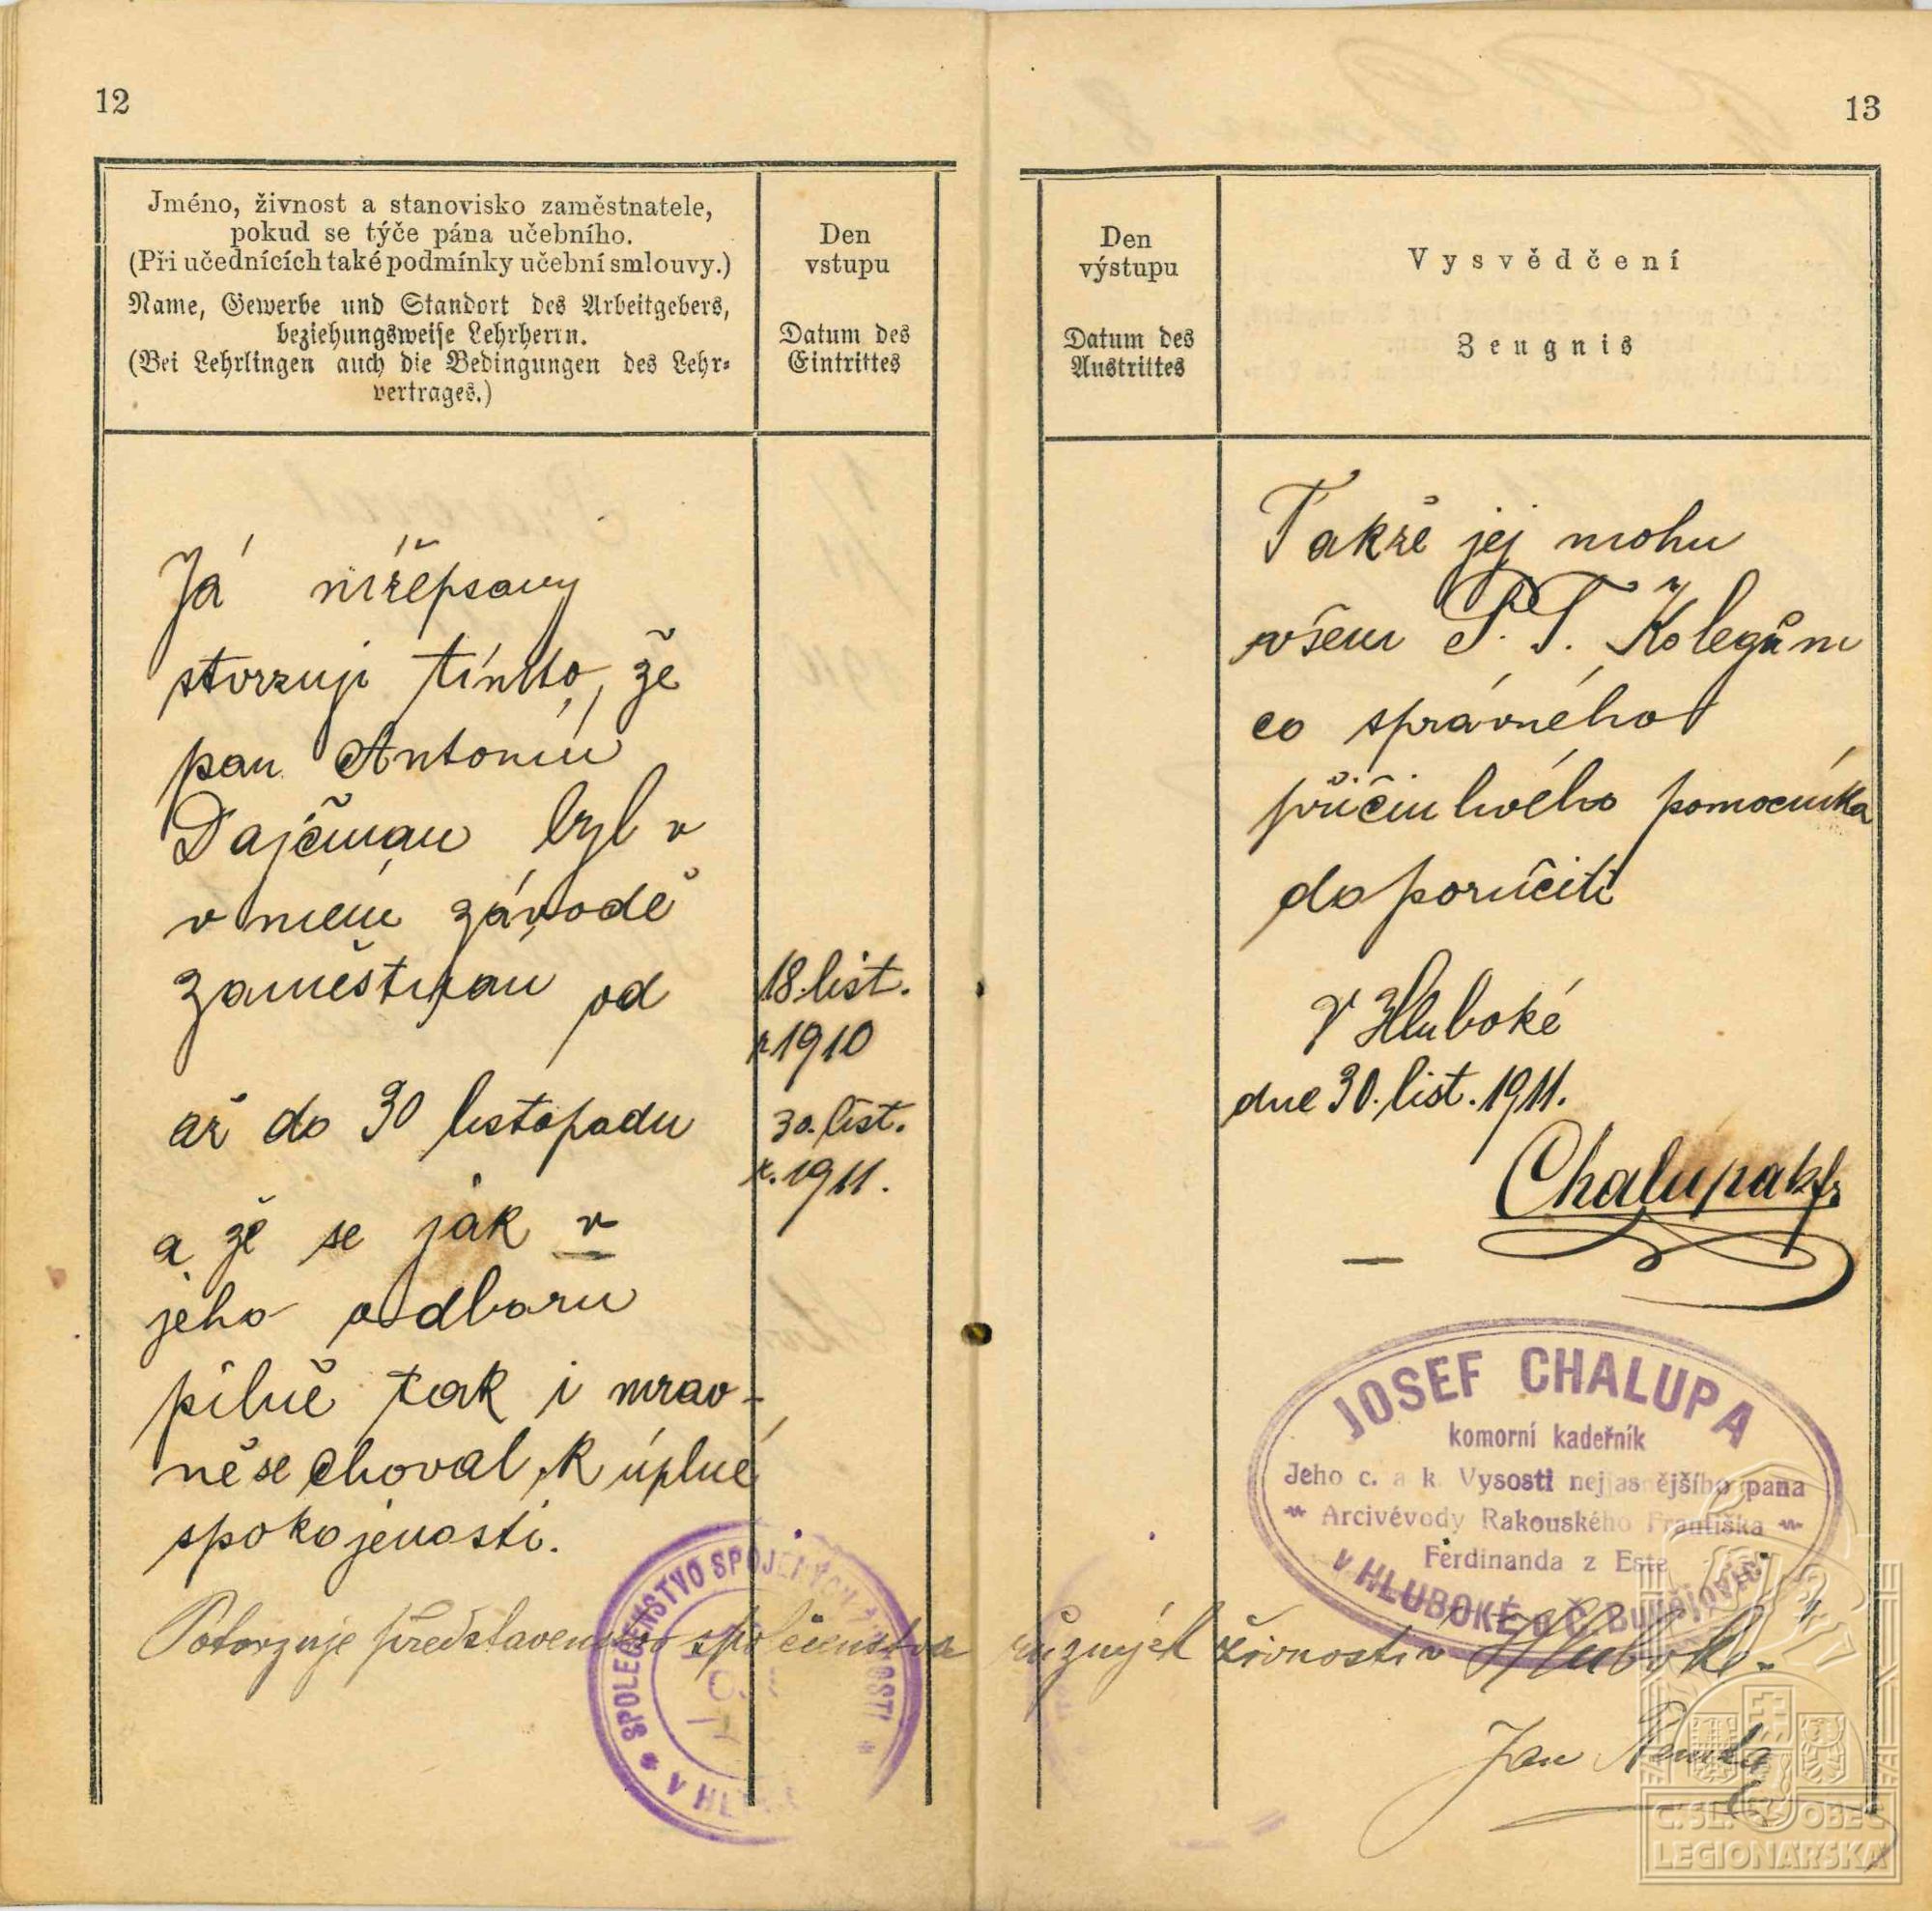 12
Jméno, živnost a stanovisko zaměstnatele,
pokud se týče pána učebního.
(Při učednících také podmínky učební smlouvy.)
Name, Gewerbe und Standort des Arbeitgebers,
beziehungsweise Lehrherrn.
(Bei Lehrlingen auch die Bedingungen des Lehr-
vertrages.)
Den
vstupu
Datum des
Eintrittes
Já nížepsaný
stvrzuji tímto, že
pan Antonín
Dajčman byl v
v mém závodě
zaměstnán od
18. list.
r 1910
až do 30 listopadu
30. list.
r. 1911.
a že se jak v
jeho odboru
pilně tak i mrav-
ně se choval, k úplné
spokojenosti.
Potvrzuje představenstvo společenstva různých živností v Hluboké.
SPOLEČENSTVO SPOJENÝCH ŽIVNOSTÍ
V HL
13
Den
výstupu
Datum des
Austrittes
Vysvědčení
Zeugnis
Takže jej mohu
všem P. T. Kolegům
co správného
přičinlivého pomocníka
doporučiti
V Hluboké
dne 30. list. 1911.
Chalupa
JOSEF CHALUPA
komorní kadeřník
Jeho c. a k. Vysosti nejjasnějšího pana
Arcivévody Rakouského Františka
Ferdinanda z Este
v HLUBOKÉ u Č. Budějovic
Jan
Č. SL. OBEC
LEGIONÁŘSKÁ